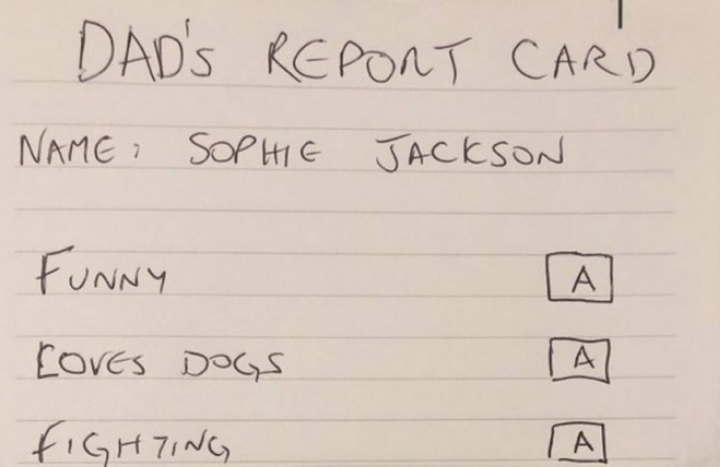 DAD'S REPORT CARD
NAME: SOPHIE JACKSON
FUNNY A
LOVES DOGS A
FIGHTING A